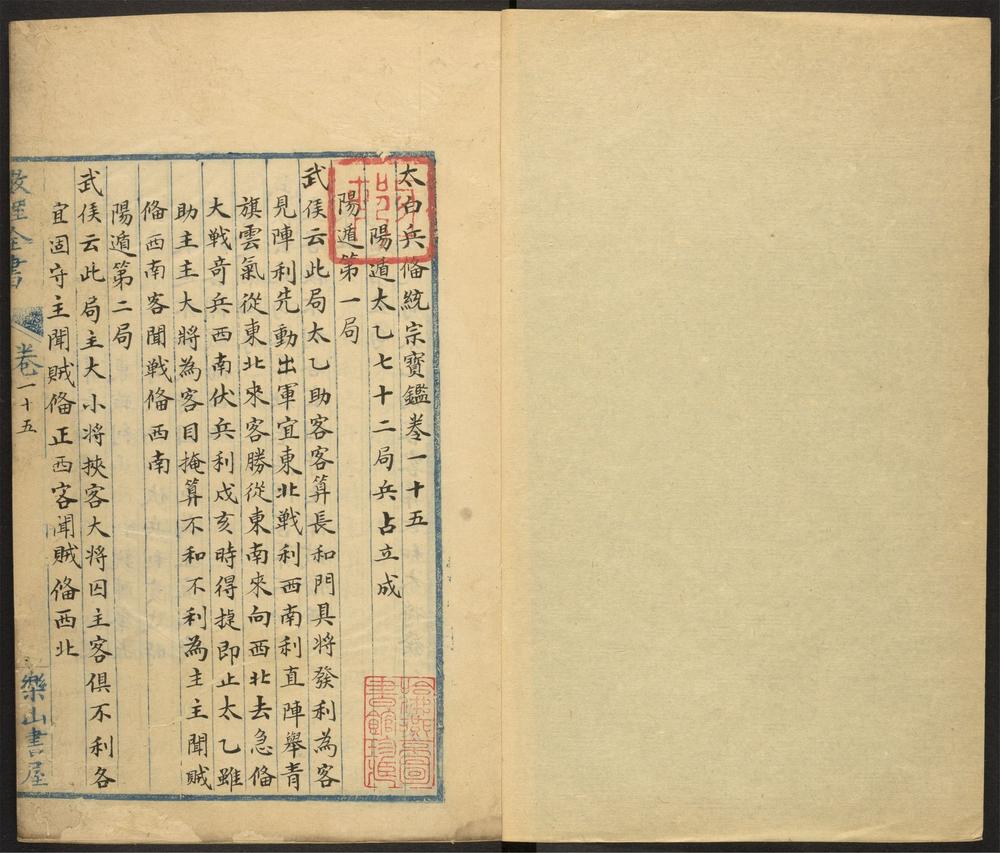 太白兵俻統宗寳鑑卷一十五
陽遁太乙七十二局兵占立成
陽遁第一局
武侯云此局太乙助客客算長和門具將發利為客
見陣利先動出軍宜東北戰利西南利直陣舉青
旗雲氣從東北來客勝從東南來向西北去急俻
大戰奇兵西南伏兵利戌亥時得捷即止太乙雖
助主主大將為客目掩算不和不利為主主聞賊
俻西南客聞戰俻西南
陽遁第二局
武侯云此局主大小將挾客大將囚主客俱不利各
宜固守主聞賊俻正西客聞賊俻西北
數理全書
卷一十五
樂山書屋
哈佛燕京圖
書館珍藏